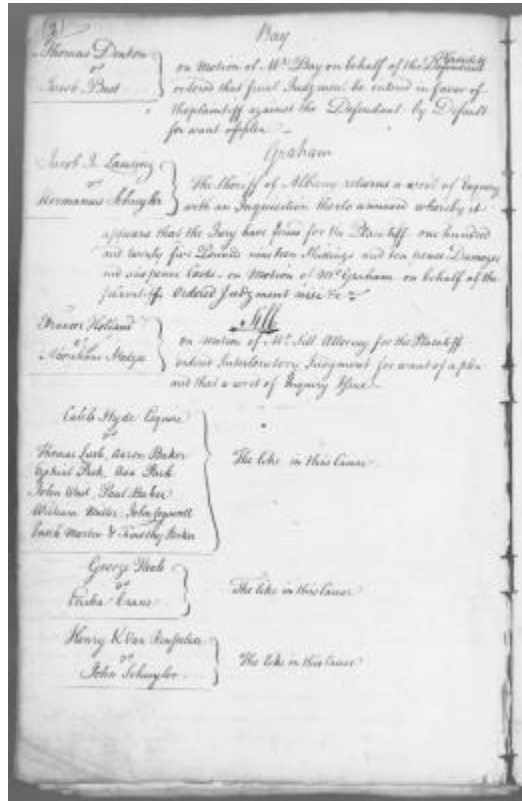 (3)
Bay
Thomas Denton
vs
Jacob Best
on Motion of Mr Bay on behalf of the Defendant Plaintiff
ordered that final Judgment be entered in favor of
the plaintiff against the Defendant by Default
for want of plea
Graham
Jacob I Lansing
vs
Hermanus Schuyler
The Sheriff of Albany returns a writ of Enquiry
with an Inquisition thereto annexed whereby it
appears that the Jury have found for the Plaintiff one hundred
and twenty five Pounds nineteen Shillings and ten pence Damages
and six pence Costs - on Motion of Mr Graham on behalf of the
plaintiff Ordered Judgment nisi &c
Sill
vs
on motion of Mr Sill Attorney for the Plaintiff
ordered Interlocutory Judgment for want of a plea
and that a writ of Inquiry Issue
Caleb Hyde Esquire
vs
Thomas Lusk, Aaron Baker
Park, Asa Park
John West, Paul Baker
William Waller, John Cogswell
Enoch Marten & Timothy Parker
The like in this Cause
George
vs
Crane
The like in this Cause
Henry K Van Rensselaer
vs
John Schuyler
The like in this Cause